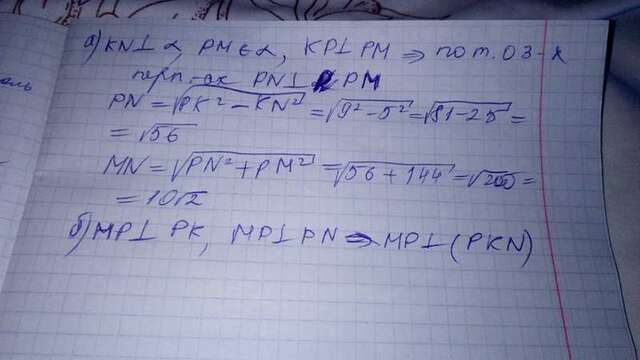 а) KN⊥α, PM∈α, KP⊥PM ⇒ по т. о 3-х
перп-ах PN⊥PM
PN = √PK² - KN² = √9² - 5² = √81 - 25 =
= √56
MN = √PN² + PM² = √56 + 144 = √200 =
= 10√2
б) MP⊥PK, MP⊥PN ⇒ MP⊥(PKN)
оль